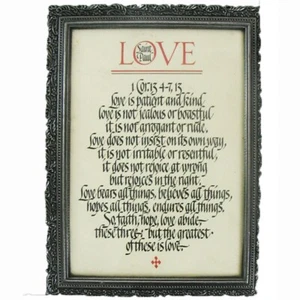 LOVE
Saint Paul
1 Cor. 13 4-7, 13
Love is patient and kind
love is not jealous or boastful
it is not arrogant or rude.
Love does not insist on its own way,
it is not irritable or resentful,
it does not rejoice at wrong
but rejoices in the right.
Love bears all things, believes all things,
hopes all things, endures all things.
So faith, hope, love abide,
these three; but the greatest
of these is love.